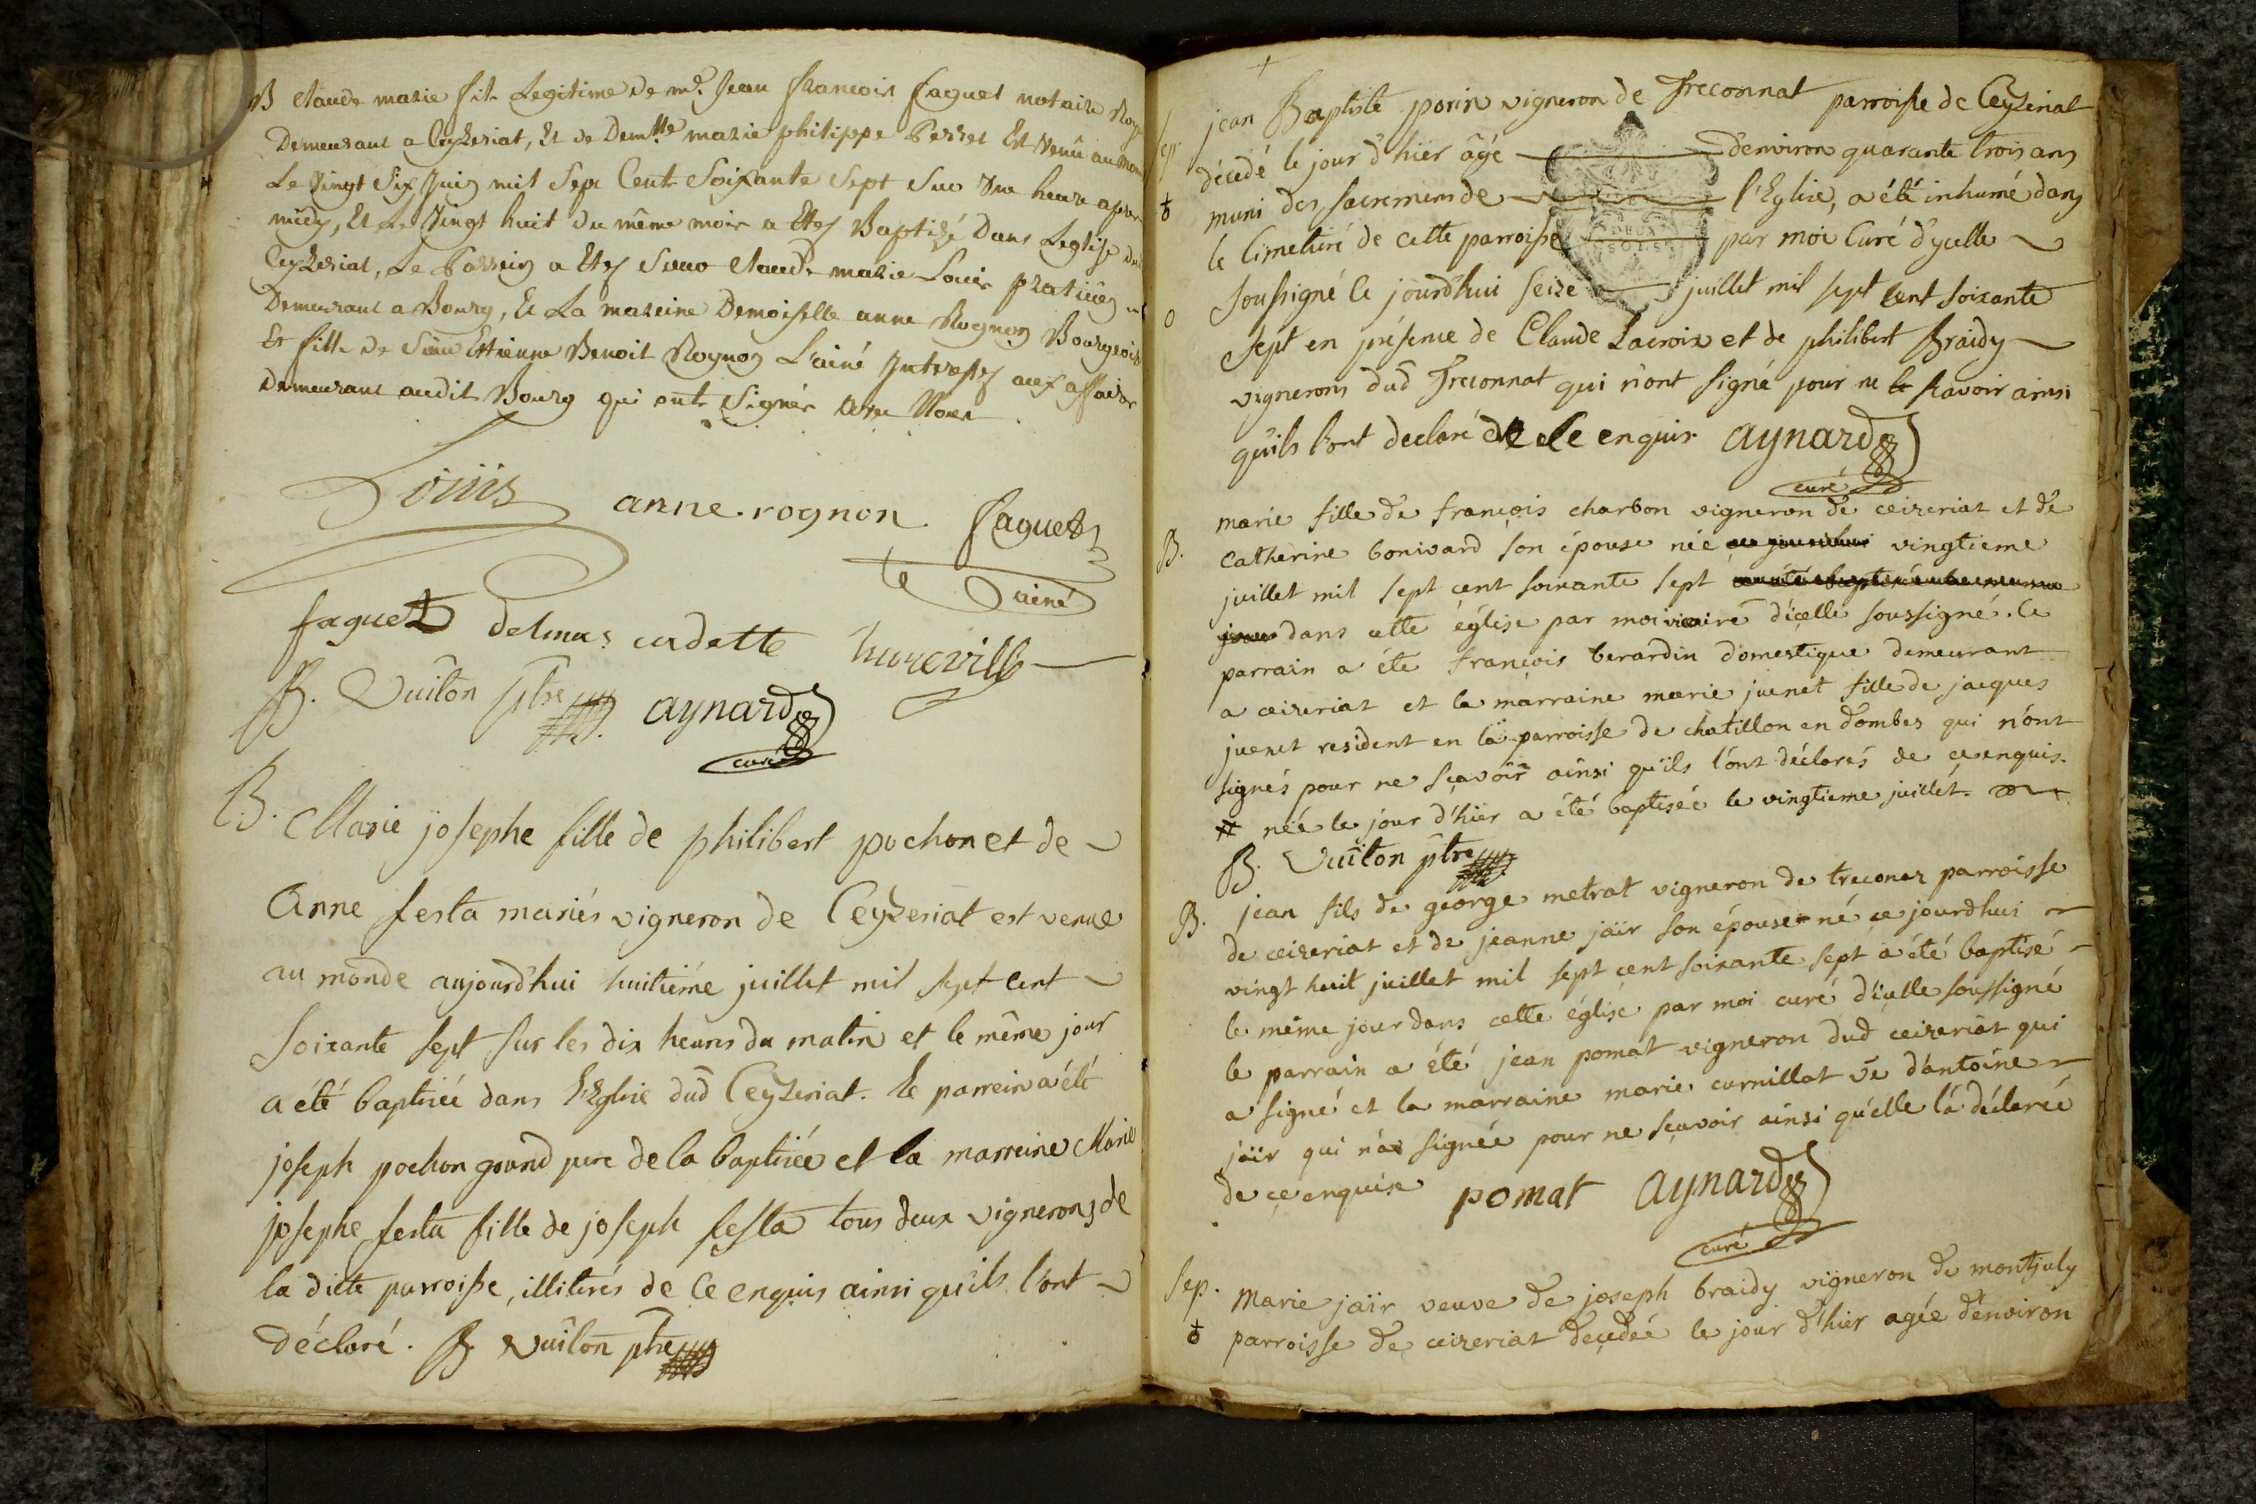 B Claude marie fils Legitime de mr. Jean françois faguet notaire Royal
Demeurant a Ceyzeriat, Et de Demlle marie philippe Perret Est venu au monde
Le vingt Six Juin mil Sept Cent Soixante Sept Sur Une heure apres
midy, Et Le Vingt huit du même mois a Etez Baptizé Dans Leglise dud
Ceyzeriat, Le Parrein a Etez Claude marie Louis praticien
Demeurant a Bourg, Et La mareine Demoiselle anne Rognon Bourgeoise
Et fille de Estienne Benoit Rognon L'ainé Interessez aux affaires
Demeurant audit Bourg qui ont Signés avec Nous
Louis anne. rognon. faguet
l'ainé
faguet delmas cadette hureville
B. Vuiton ptre aynard
curé
B. Marie josephe fille de philibert pochon et de
Anne festa mariés vigneron de Ceyzeriat est venue
au monde aujourd'hui huitiéme juillet mil sept cent
soixante sept sur les dix heures du matin et le même jour
a été baptisée dans l'Eglise dud Ceyzeriat. le parrein a été
joseph pochon grand pere de la baptisée et la marreine Marie
josephe festa fille de joseph festa tous deux vignerons de
la dicte parroisse, illiterés de ce enquis ainsi quils l'ont
déclaré. B. Vuiton ptre
jean Baptiste porin vigneron de Treconnat parroisse de Ceyzeriat
Sep. décedé le jour d'hier âgé d'environ quarante trois ans
muni des sacremens de l'Eglise, a été inhumé dans
le Cimetiere de cette parroisse par moi Curé d'ycelle
DEUX SOLS
soussigné ce jourd'hui seize juillet mil sept cent soixante
sept en présence de Claude Lacroix et de philibert Braidy
vignerons dud Treconnat qui n'ont signé pour ne le scavoir ainsi
qu'ils l'ont declaré de ce enquis aynard
curé
marie fille de françois charbon vigneron de ceizeriat et de
B. Catherine bonivard son épouse née ce jourdhui vingtieme
juillet mil sept cent soixante sept
jour dans cette église par moi vicaire d'icelle soussigné. le
parrain a éte françois berardin domestique demeurant
a ceizeriat et la marraine marie juenet fille de jacques
juenet resident en la parroisse de chatillon en dombes qui n'ont
signés pour ne sçavoir ainsi qu'ils l'ont déclarés de ce enquis.
# née le jour d'hier a été baptisée le vingtieme juillet.
B. Vuiton ptre
B. jean fils de george metrat vigneron de treconaz parroisse
de ceizeriat et de jeanne jaïr son épouse né ce jourdhui
vingt huit juillet mil sept cent soixante sept a été baptisé
le même jour dans cette église par moi curé d'icelle soussigné
le parrain a été jean pomat vigneron dud ceizeriat qui
a signé et la marraine marie curnillat ve d'antoine
jaïr qui n'a signée pour ne sçavoir ainsi qu'elle l'a déclarée
de ce enquise pomat aynard
curé
Sep. Marie jaïr veuve de joseph braidy vigneron de montjuly
parroisse de ceizeriat decedeé le jour d'hier agée d'environ